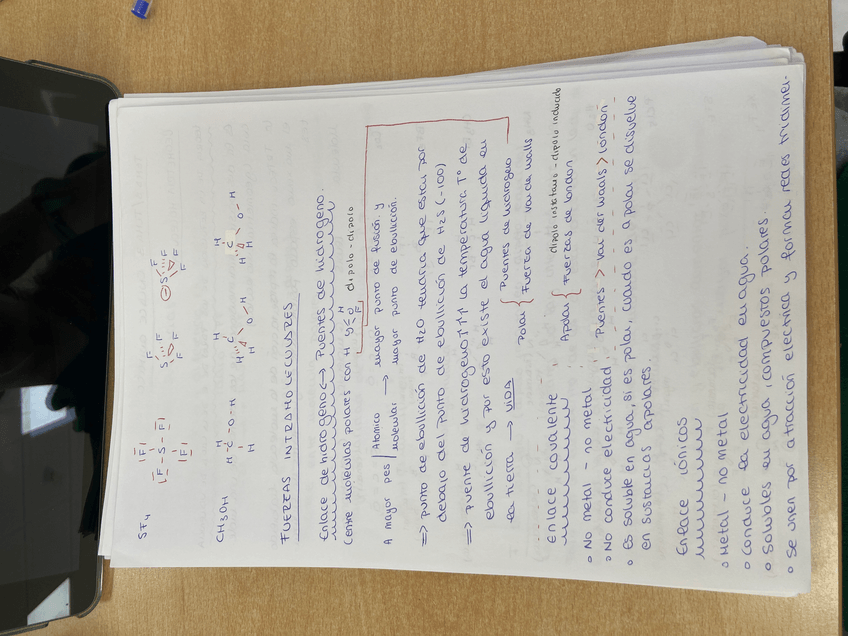 SF4
CH3OH
FUERZAS INTRAMOLECULRES
Enlace de hidrogeno <-> Puentes de hidrogeno.
(entre moleculas polares con H y N O F dipolo-dipolo
A mayor pes Atomico → mayor punto de fusión y
Molecular mayor punto de ebullición.
=> punto de ebullición de H2O tendria que estar por
debajo del punto de ebullición de H2S (-100)
=> puente de hidrogeno ↑↑↑ la temperatura Tº de
ebullición y por esto existe el agua liquida en
la tierra → VIDA
Polar { Puentes de hidrogeno
Fuerza de van de walls
dipolo instataneo - dipolo inducido
Apolar { Fuerzas de london
Enlace covalente
o No metal - no metal
o No conduce electricidad
Puentes > van der waals > london
o Es soluble en agua, si es polar, cuando es a polar se disuelve
en sustancias apolares.
Enlace iónicos
o Metal - no metal
o Conduce la electricidad en agua.
o Solubles en agua, compuestos polares
o Se unen por atracción electrica y forman redes tridimei-